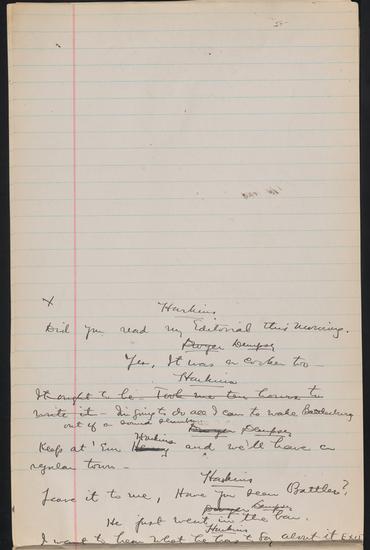 x
Harkins
Did you read my Editorial this morning.
Dwyer Dempsey
Yes, It was a corker too -
Harkins
It ought to be - Took me ten hours to
write it - I'm going to do all I can to wake Battenburg
out of a sound slumber.
Dwyer Dempsey
Keep at 'Em Harkins and we'll have a
regular town -
Harkins
Leave it to me, Have you seen Battles?
Dwyer Dempsey
He just went in the bar.
Harkins
I want to hear what he has to say about it Exit